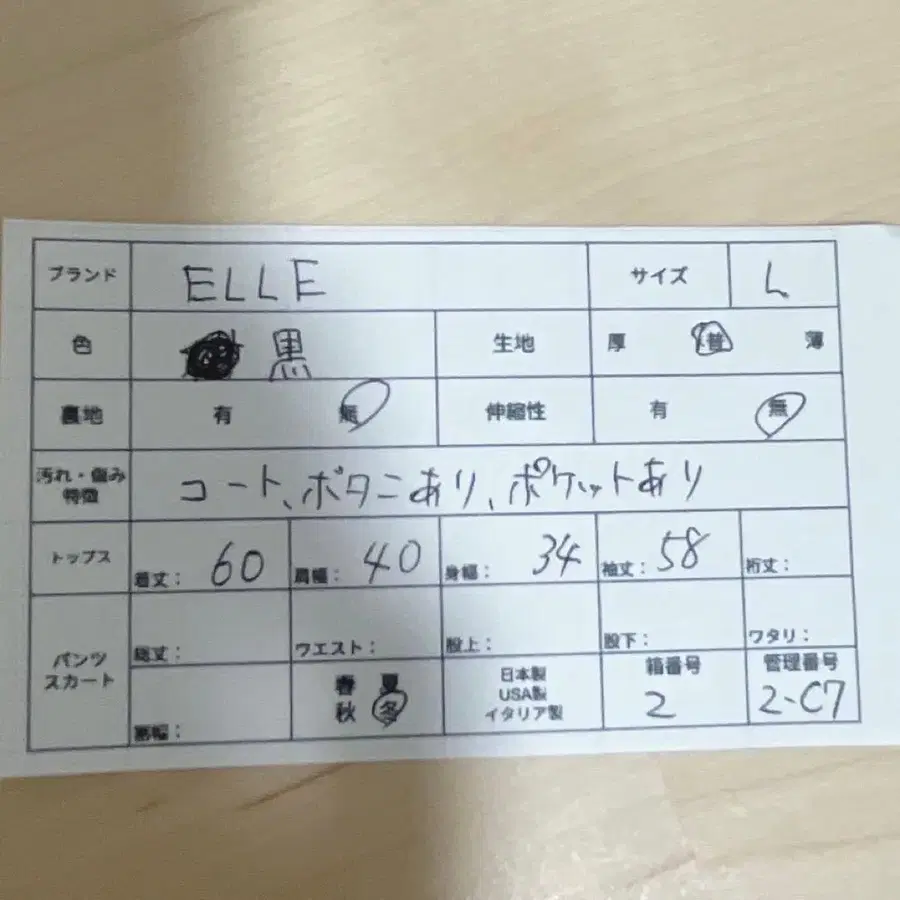 ブランド ELLE サイズ L
色 黒 生地 厚 普 薄
裏地 有 無 伸縮性 有 無
汚れ・傷み
特徴 コート、ボタニあり、ポケットあり
トップス 着丈: 60 肩幅: 40 身幅: 34 袖丈: 58 裄丈:
パンツ
スカート
総丈: ウエスト: 股上: 股下: ワタリ:
裾幅:
春 夏
秋 冬
日本製
USA製
イタリア製
箱番号
2
管理番号
2-C7